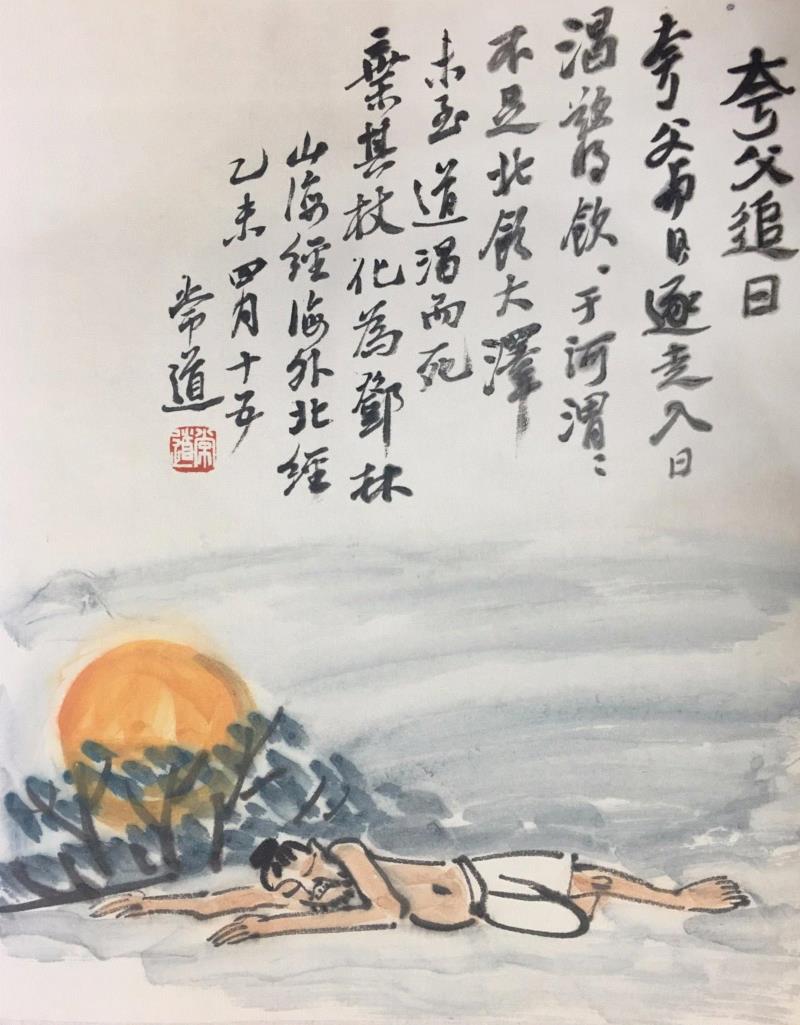 夸父追日
夸父與日逐走入日
渴欲得飲、于河渭〻
不足北飲大澤
未至道渴而死
棄其杖化為鄧林
山海經海外北經
乙未四月十五
常道
常道